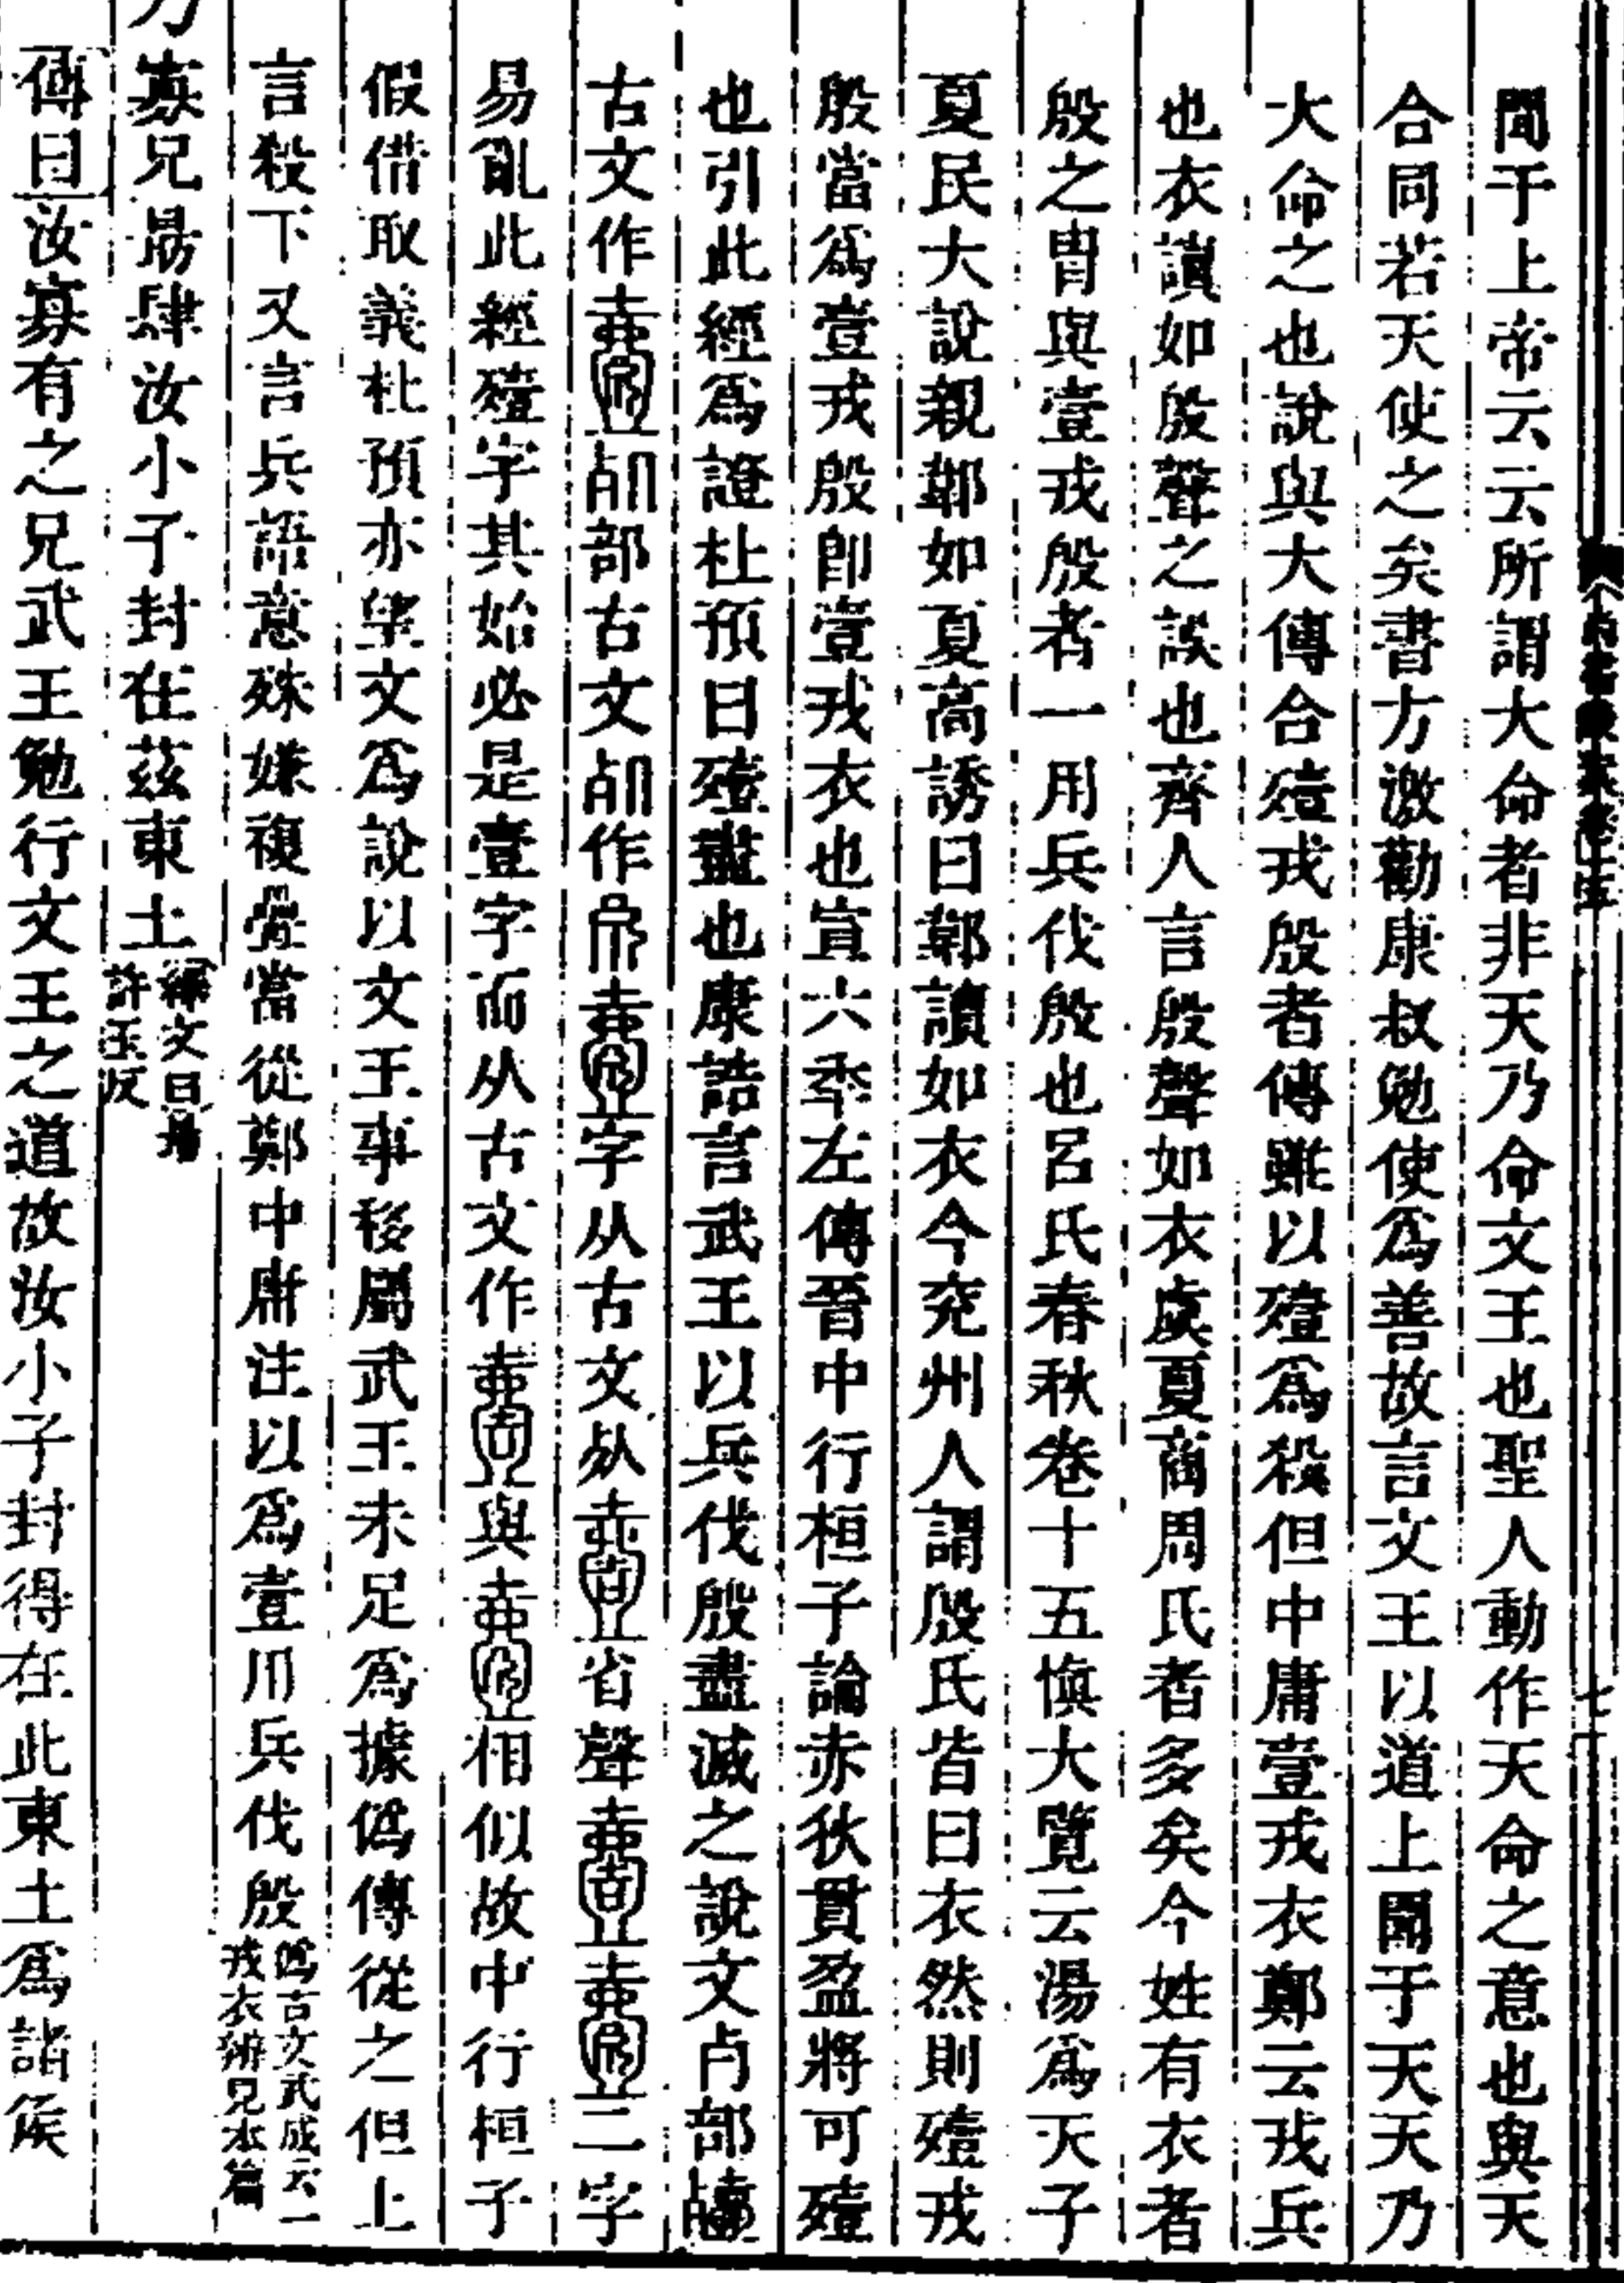 聞于上帝云云所謂大命者非天乃命文王也聖人動作天命之意也與天
合同若天使之矣書方激勸康叔勉使爲善故言文王以道上聞于天天乃
大命之也說與大傳合殪戎殷者傳雖以殪爲殺但中庸壹戎衣鄭云戎兵
也衣讀如殷聲之誤也齊人言殷聲如衣虞夏商周氏者多矣今姓有衣者
殷之冑與壹戎殷者一用兵伐殷也呂氏春秋卷十五愼大覽云湯爲天子
夏民大說親郼如夏高誘曰郼讀如衣今兖州人謂殷氏皆曰衣然則殪戎
殷當爲壹戎殷卽壹戎衣也宣六年左傳晉中行桓子論赤狄貫盈將可殪
也引此經爲證杜預曰殪盡也康誥言武王以兵伐殷盡滅之說文歺部殪
古文作部古文作字从古文从省聲二字
易亂此經殪字其始必是壹字而从古文作與相似故中行桓子
假借取義杜預亦望文爲說以文王事移屬武王未足爲據僞傳從之但上
言殺下又言兵語意殊嫌複疊當從鄭中庸注以爲壹用兵伐殷
僞古文武成云一
戎衣辨見本篇
乃寡兄勗肆汝小子封在茲東土
釋文曰勗
許玉反
傳曰汝寡有之兄武王勉行文王之道故汝小子封得在此東土爲諸侯